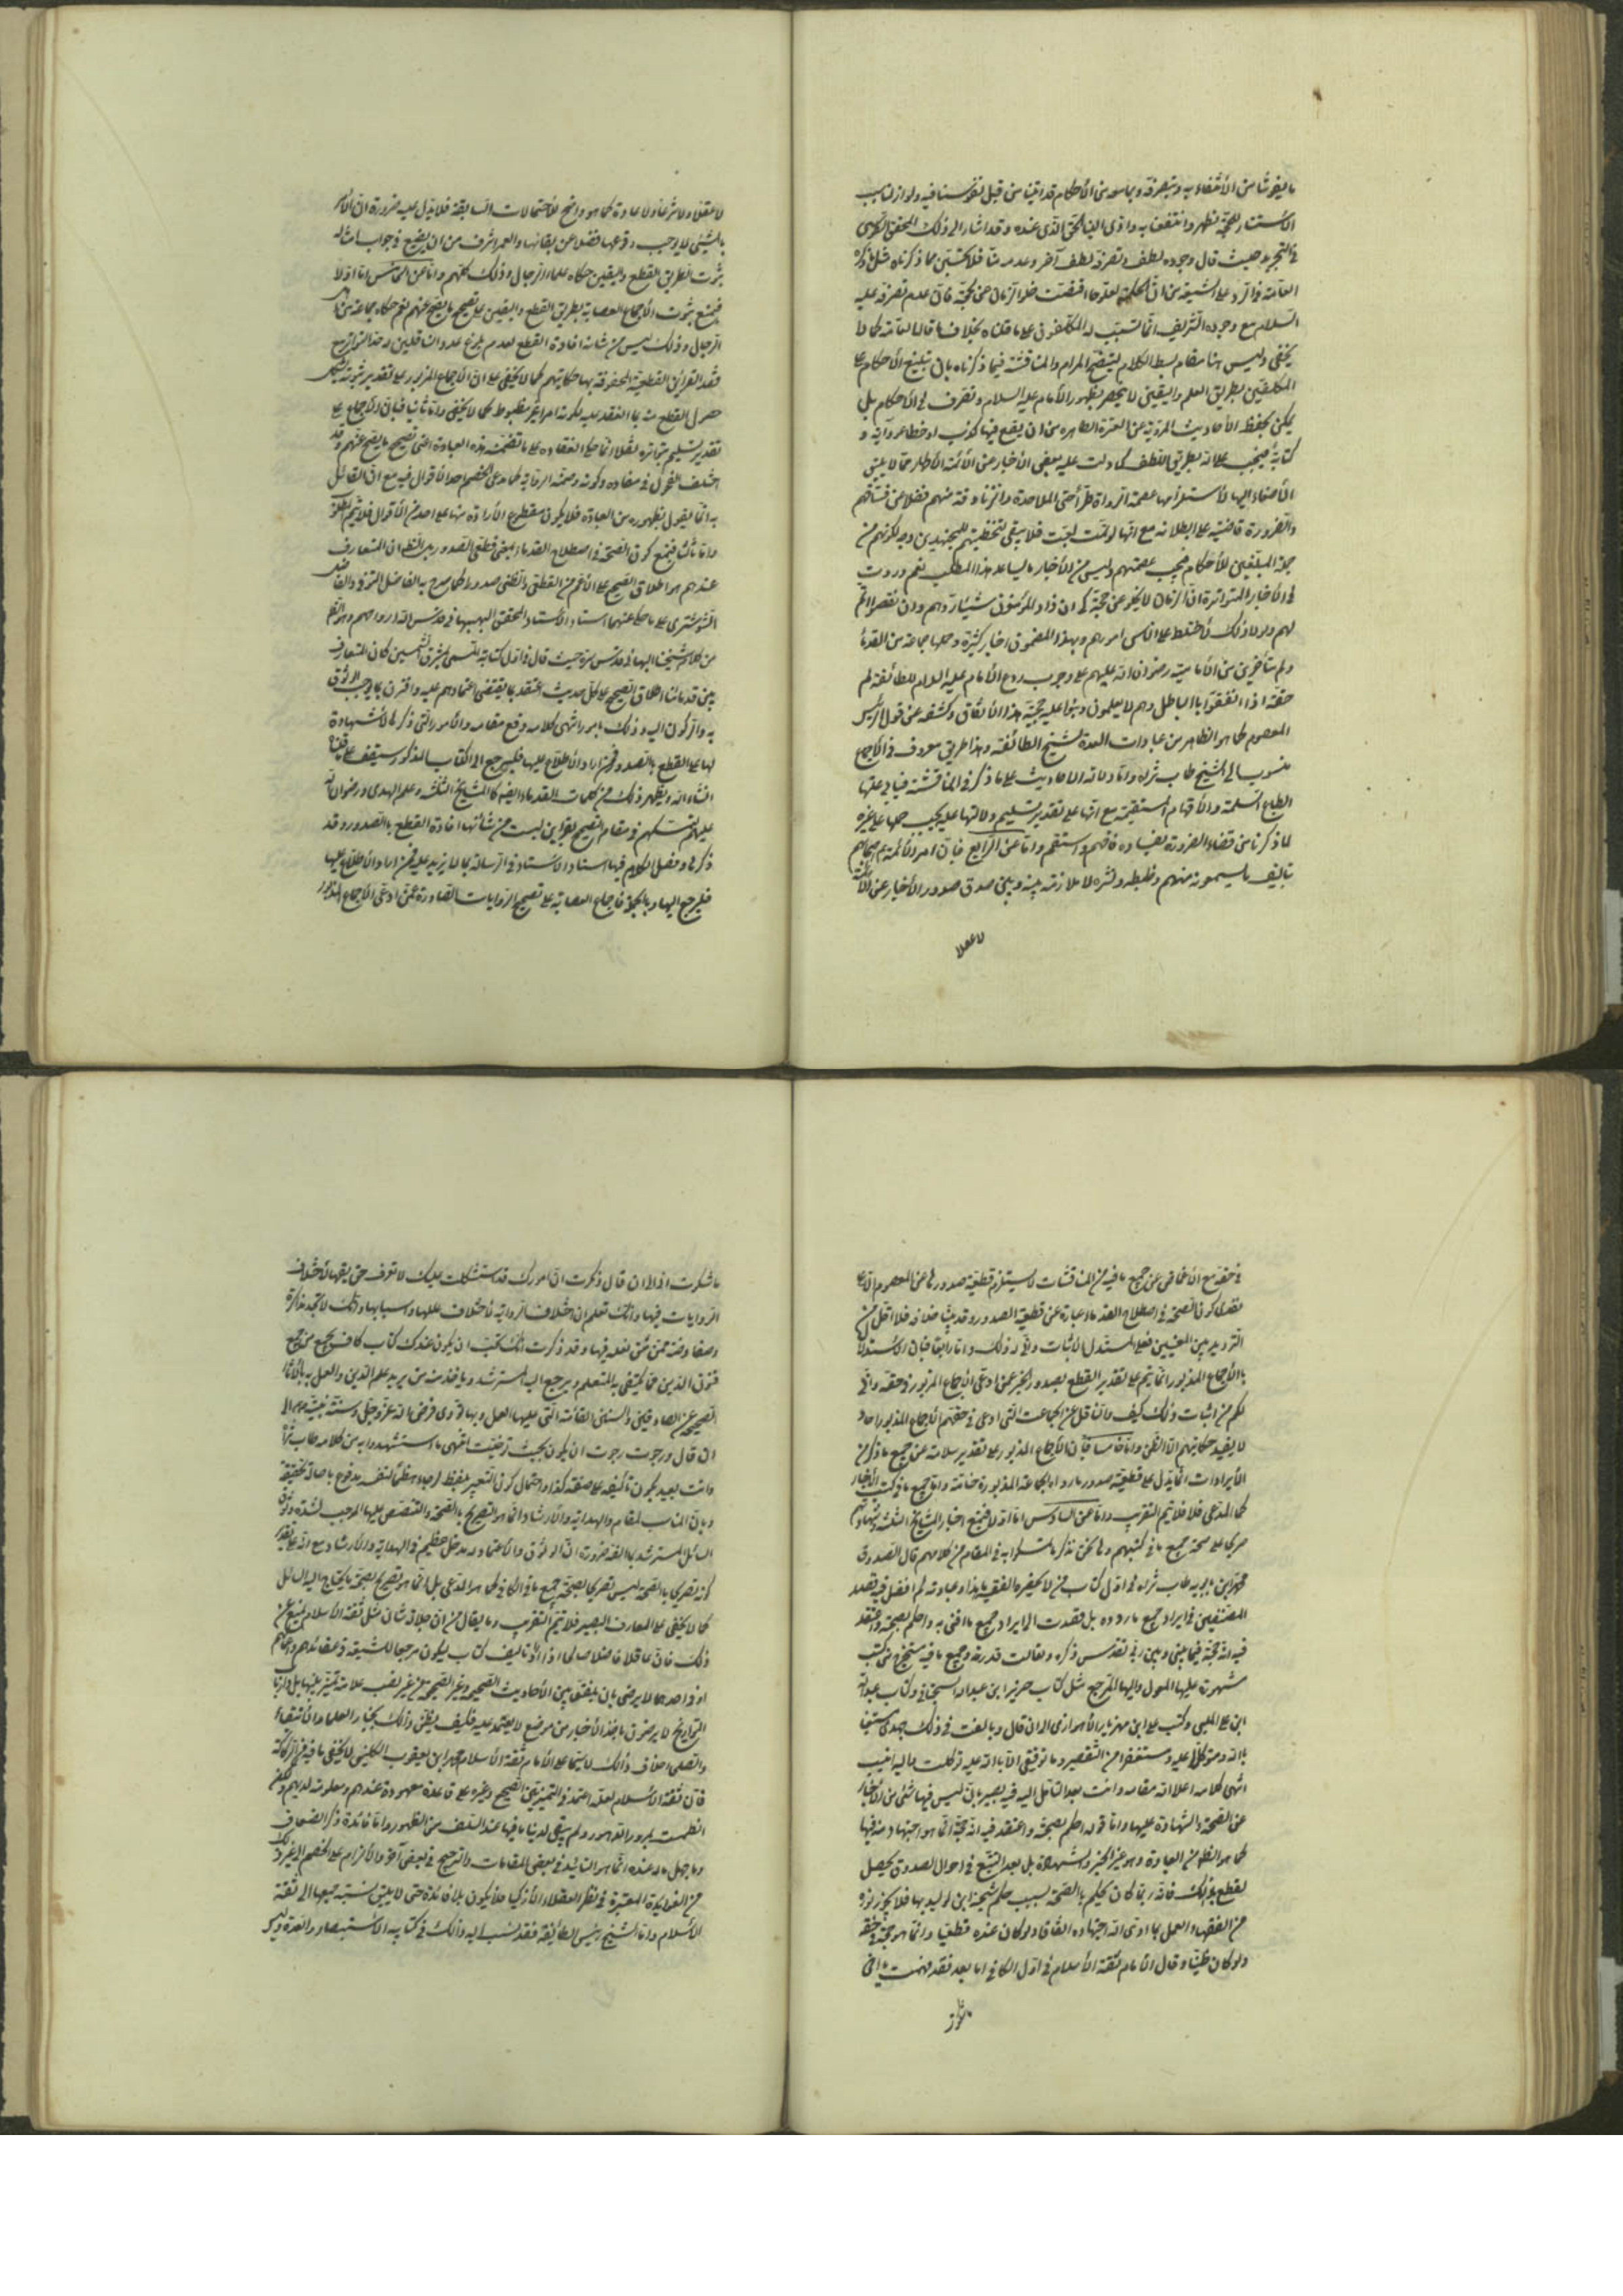 ما يفوتنا من الأنتفاء به وتبصرفه وبما معه من الأحكام قد اتينا من قبل نفوسنا فيه ولو ازلنا سبب
الاستتار للحجة لظهر وانتفعنا به وادى الينا الحق الذى عنده وقد اشار الى ذلك المحقق الطوسى
فى التجريد حيث قال وجوده لطف وتصرفه لطف آخر وعدمه منا فلا يحسبن مما ذكرناه مثل ما ذكره
العامة فى الرد على الشيعة من ان الحكمة لعلها اقتضت خلو الزمان عن الحجة فان عدم تصرفه عليه
السلام مع وجوده الشريف انما تسبب له المكلفون على ما قلناه بخلاف ما قاله العامة كما لا
يخفى وليس هنا مقام بسط الكلام ليتضح المرام والمناقشة فيما ذكرناه بان تبليغ الأحكام على
المكلفين بطريق العلم واليقين لا ينحصر بظهور الأمام عليه السلام وتصرفه فى الأحكام بل
يمكن بحفظ الأحاديث المروية عن العترة الطاهره من ان يقع فيها كذب او خطا عن رواية و
كتابة فيجب على الله بطريق اللطف كما دلت عليه بعض الأخبار عن الأئمة الأطهار مما لا ينبغى
الأصغاء اليها لأستلزامها عصمة الرواة طرأ حتى الملاحدة والزنادقة منهم فضلا عن فساقهم
والضرورة قاضية على بطلانه مع انها لو تمت لمت فلا يبقى لتخطئتهم للمجتهدين وجه لكونهم من
جملة المبلغين للأحكام فيجب عصمتهم وليس من الأخبار ما يساعد هذا المطلب نعم وردت
فى الأخبار المتواترة ان الزمان لا يخلو عن حجة كى ان زاد المؤمنون شيئا ردهم وان نقصوا اتم
لهم ولولا ذلك لأختلط على الناس امورهم وبهذا المضمون اخبار كثيرة وحملها جماعة من القدماء
ولم تتأخرين من الأمامية رضوان الله عليهم على وجوب ردع الأمام عليه السلام للطائفة لم
حقة اذا اتفقوا با الباطل وهم لا يعلمون وبنوا عليه حجية هذا الأتفاق وكشفه عن قول الرئيس
المعصوم كما هو الظاهر من عبارات العدة لشيخ الطائفة وهذا طريق معروف فى الأجماع
منسوب الى الشيخ طاب ثراه واما دلالة الأحاديث على ما ذكر فى المناقشة فيابى عنها
الطباع السليمة والأفهام المستقيمة مع انها على تقدير تسليم دلالتها عليه يجب حملها على غيره
لما ذكرنا من قضاء الضرورة بفساده فافهم واستقم واما عن الرابع فبان امر الأئمة عم اصحابهم
بتاليف ما يسمعونه منهم وضبطه ونشره لا ملازمة بينه وبين صدق صدور الأخبار عن الأئمة
لا عقلا
لا عقلا ولا شرعا ولا عادة كما هو واضح للأحتمالات السابقة فلا يدل عليه ضرورة ان الأمر
بالشيئ لا يوجب وقوعها فضلا عن بقائها والعمر اشرف من ان يضيع فى جواب امثاله
ثبوت بطريق القطع واليقين حكاه علماء الرجال وذلك كفيهم واما عن الخامس اما اولا
فيمنع ثبوت الأجماع العصابة بطريق القطع واليقين على تصحيح ما يصح عنهم نعم حكاه جماعة من اهل
الرجال وذلك ليس من شانه افادة القطع لعدم بلوغ عدد الناقلين له حد التواتر مع
فقد القرائن القطعية المحفوفة بها حكايتهم كما لا يخفى على ان الأجماع المزبور على تقدير ثبوته يشكل
حصول القطع منه بما انعقد عليه لكونه امرا غير مظبوط كما لا يخفى واما ثانيا فبان الأجماع على
تقدير تسليم تواتره نقلا انما حكى انعقاده على ما تضمنته هذه العبارة التى تصحيح ما يصح عنهم وقد
اختلف الفحول فى مفاده وكونه وصحة الرواية كما يدعى الخصم احد الأقوال فيه مع ان القائل
به انما يقول بظهوره من العبارة فلا يكون مقطوع الأرادة منها على احد من الأقوال فلا يتم المطلوب
واما ثالثا فيمنع كون الصحة فى اصطلاح القدماء بمعنى قطعى الصدور بل الظاهر ان المتعارف
عندهم هو اطلاق الصحيح على الأعم من القطعى والظنى صدورا كما صرح به الفاضل التونى والفاضل
الشوشترى على ما حكى عنهما استاد الأستاد المحقق البهبهانى قدس الله ارواحهم وهو الظاهر
من كلام شيخنا البهائى قدس سره حيث قال فى اول كتابه المسمى بمشرق الشمسين كان المتعارف
بين قدمائنا اطلاق الصحيح على كل حديث اعتضد بما يقتضى اعتمادهم عليه واقترن بما يوجب الوثوق
به والركون اليه وذلك بامور انتهى كلامه رفع مقامه والأمور التى ذكرها لا شهادة
لها على القطع بالصدور فمن اراد الأطلاع عليها فليرجع الى الكتاب المذكور سيقف على ما قلناه
انشاء الله ويظهر ذلك من كلمات القدماء ايضه كالمشايخ الثلثة وعلم الهدى رضوان الله
عليهم لتمسكهم فى مقام التصحيح بقرائن ليست من شانها افادة القطع بالصدور وقد
ذكرها وفصل الكلام فيها استاد الأستاد فى الرسالة بما لا مزيد عليه فمن اراد الأطلاع عليها
فليرجع اليها وبالجملة فاجماع العصابة على تصحيح الروايات الصادرة عمن ادعى الأجماع المذكور
فى حقه مع الأغماض عن جميع ما فيه من المناقشات لا يستلزم قطعية صدورها عن المعصوم الا على
تقدير كون الصحة فى اصطلاح القدماء عبارة عن قطعية الصدور وقد بينا خلافه فلا اقل من
الترديد بين المعنيين فعلى المستدل الأثبات وانى له ذلك واما رابعا فبان الأستدلال
بالأجماع المذبور انما يتم على تقدير القطع بصدور الخبر عمن ادعى الأجماع المزبور فى حقه وانى
لكم من اثبات ذلك كيف والناقل عن الجماعة التى ادعى فى حقهم الأجماع المذبور احاد
لا يفيد حكايتهم الا الظن واما خامسا فبان الأجماع المذبور على تقدير سلامته عن جميع ما ذكر من
الأيرادات انما يدل على قطعية صدور ما رواه الجماعة المذبورة خاصة واما جميع ما فى كتب الأخبار
كما المدعى فلا فلا يتم التقريب واما عن السادس اما اولا فيمنع اخبار المشايخ الثلثة وشهادتهم
صريحا على صحة جميع ما فى كتبهم ولنحن نذكر ما تمسكوا به فى المقام من كلامهم قال الصدوق
محمد ابن بابويه طاب ثراه فى اول كتاب من لا يحضره الفقيه ما هذا عبارته لم اقصد فيه قصد
المصنفين فى ايراد جميع ما رووه بل قصدت الى ايراد جميع ما افتى به واحكم بصحته واعتقد
فيه انه حجة فيما بينى وبين ربى تقدس ذكره وتعالت قدرته وجميع ما فيه مستخرج من كتب
مشهورة عليها المعول واليها المرجع مثل كتاب حريز ابن عبد الله السجستانى وكتاب عبيد الله
ابن على الحلبى وكتب على ابن مهزيار الأهوازى الى ان قال وبالغت فى ذلك جهدى مستعينا
بالله ومتوكلا عليه ومستغفرا من التقصير وما توفيقى الا بالله عليه توكلت واليه انيب
انتهى كلامه اعلا الله مقامه وانت بعد التامل اليه فيه بصير بان ليس فيها شئى من الأخبار
عن الصحة والشهادة عليها واما قوله احكم بصحته واعتقد فيه انه حجة انما هو اجتهاد منه فيها
كما هو الظاهر من العبارة وهو غير الخبر والشهادة بل بعد التتبع فى احوال الصدوق يحصل
لقطع بذلك فانه ربما كان يحكم بالصحة بسبب حكم شيخه ابن الوليد بها فلا يجوز لغيره
من الفقهاء العمل بما ادى اليه اجتهاده اتفاقا ولو كان عنده قطعيا وانما هو حجة فى حقه
ولو كان ظنيا وقال الأمام ثقة الأسلام فى اول الكافى اما بعد فقد فهمت يا اخى
ما شكوت
ما شكوت اذ الى ان قال وذكرت ان امورك قد استشكلت عليك لا تعرف حق يقيها لأختلاف
الروايات فيها وانك تعلم ان اختلاف الرواية لأختلاف عللها واسبابها وانك لا تجد بذاكرة
وتفاوضه ممن تثق بعلمه فيها وقد ذكرت انك تحب ان يكون عندك كتاب كاف يجمع من جميع
فنون الدين مما يكتفى به المتعلم ويرجع اليه المسترشد وياخذ منه من يريد علم الدين والعمل به بالأثار
الصحيحة عن الصادقين والسنن القائمة التى عليها العمل وبها تؤدى فرض الله عز وجل وسنة نبيه ص الى
ان قال ورجوت ان يكون بحيث توخيت انتهى ما استشهدوا به من كلامه طاب ثراه
وبان المناسب لمقام والهداية والأرشاد انما هو التصريح بالصحة والتنصيص عليها الموجب لشدة وثوق
السائل المسترشد بما الفه ضرورة ان الوثوق والأعتماد له مدخل عظيم فى الهداية والأرشاد مع انه على تقدير
كونه تصريحا بالصحة ليس تصريحا بصحة جميع ما فى الكافى كما هو المدعى بل انما هو تصريح بصحة ما يحتاج اليه السائل
كما لا يخفى على العارف البصير فلا يتم التقريب وما يقال من ان جلالة شان مثل ثقة الأسلام يمنع عن
ذلك فان عاقلا فاضلا صالحا اذا اراد تاليف كتاب ليكون مرجعا للشيعة فى عقائدهم واعمالهم
او فى احدهما لا يرضى بان يلفق بين الأحاديث الصحيحة وغير الصحيحة من غير نصب علامة تميز بينها بل ارباب
التواريخ لا يرضون باخذ الأخبار من موضع لا يعتمد عليه فكيف يظن ذلك بخيار العلماء والأتقياء
والصلحاء خلاف ذلك لا سيما على الأمام ثقة الأسلام محمد ابن يعقوب الكلينى لا يخفى ما فيه من الركاكة
فان ثقة الأسلام لعله اعتمد فى التميز بين الصحيح وغيره على قاعدة معهودة عندهم ومعلومة لديهم ولكن
انطمست بمرور الدهور ولم يبقى لدينا ما فيها عند السلف من الظهور واما فائدة ذكر الضعاف
وما جهل حاله عنده انما هو التائيد فى بعض المقامات والترجيح فى بعض آخر والألزام على الخصم الى غير ذلك
من الفوايد المعتبرة فى نظر العقلاء الأزكيا فلا يكون بلا فائدة حتى لا يليق نسبة جمعها الى ثقة
الأسلام واما الشيخ رئيس الطائفة فقد نسب اليه ذلك فى كتابيه الأستبصار والعدة وليس